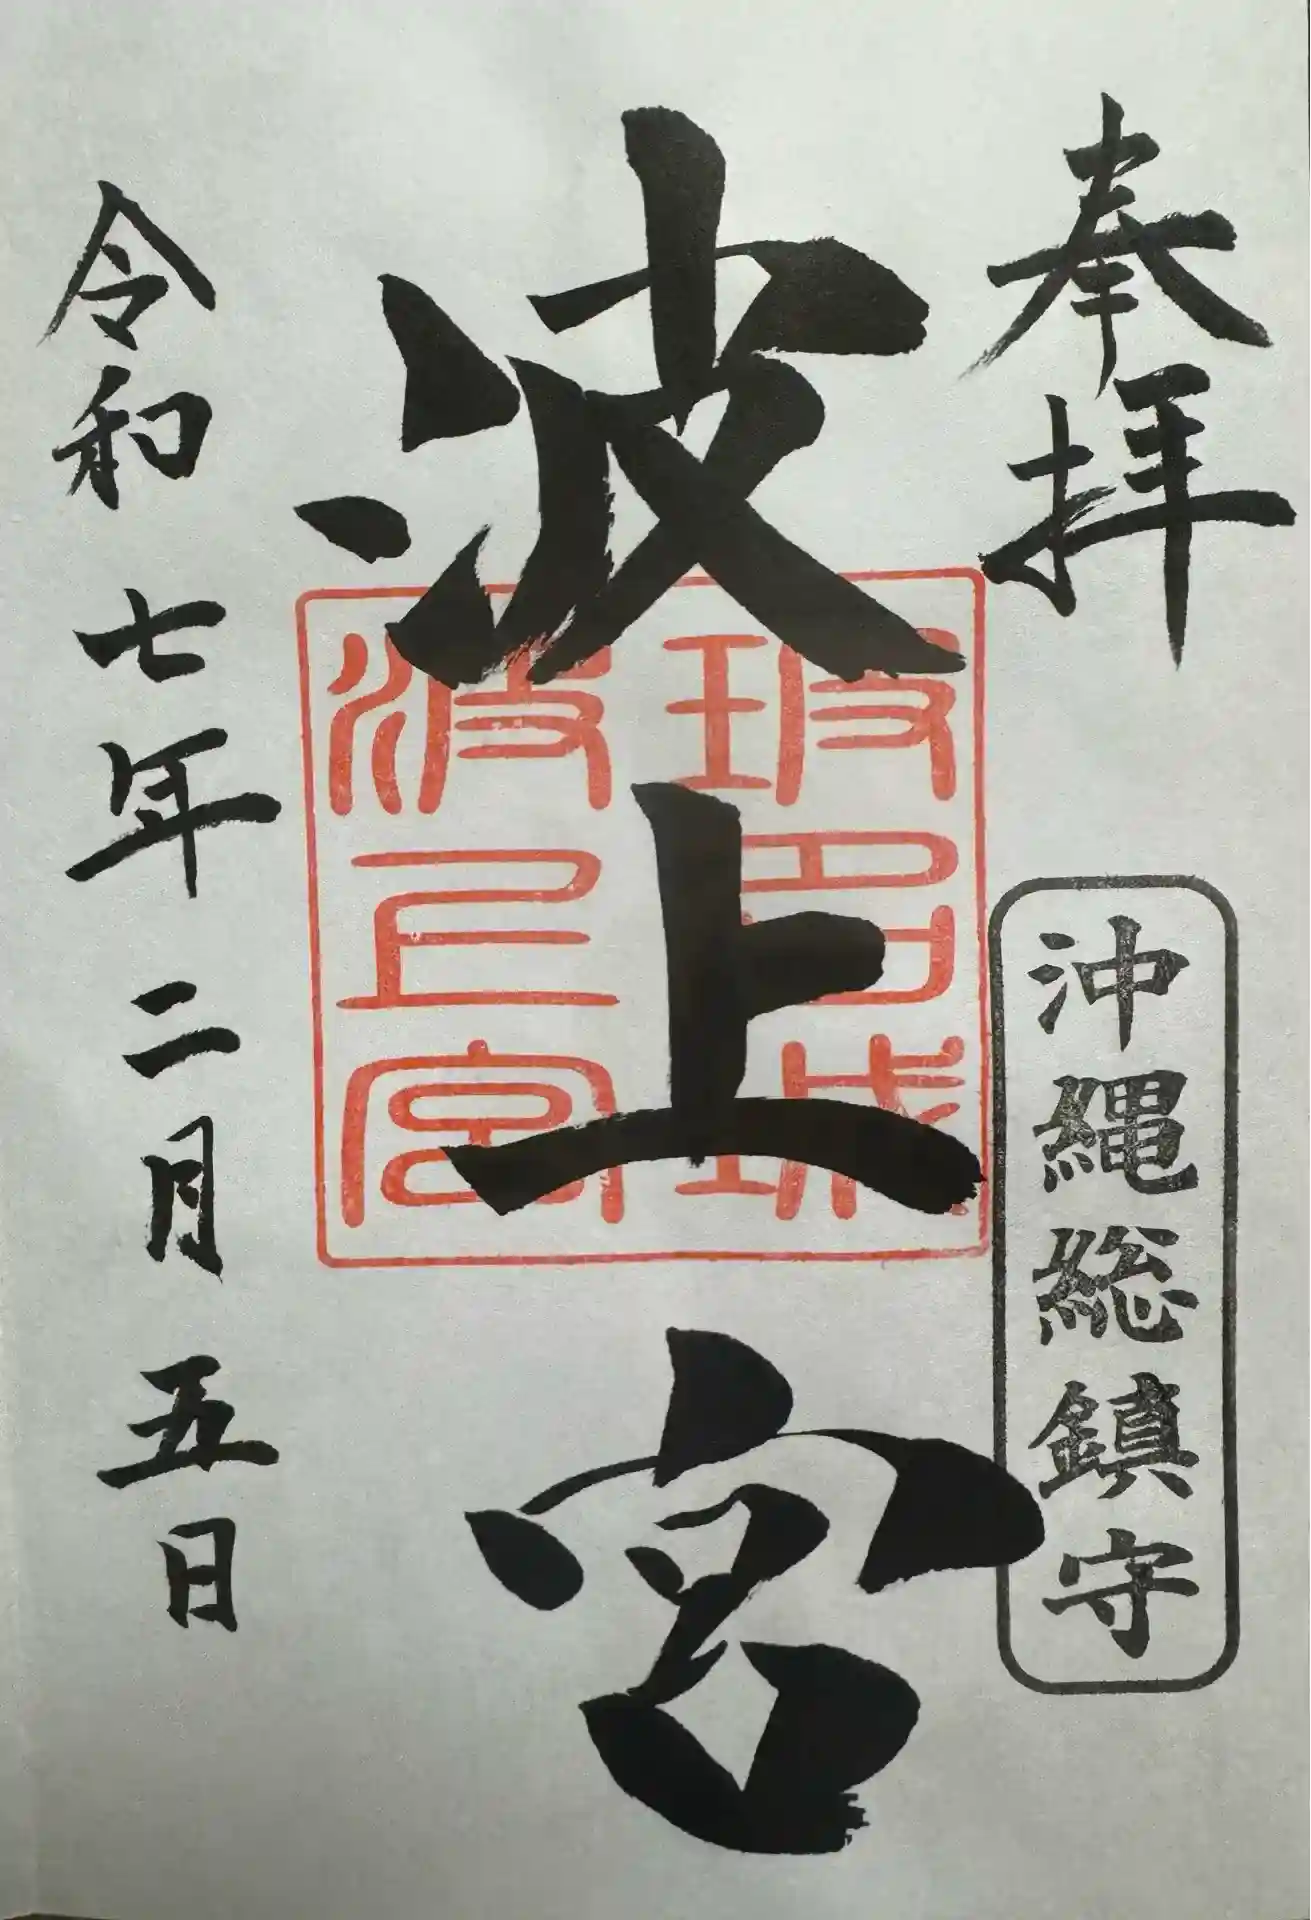 奉拝
沖縄総鎮守
波上宮
波上宮
令和七年二月五日